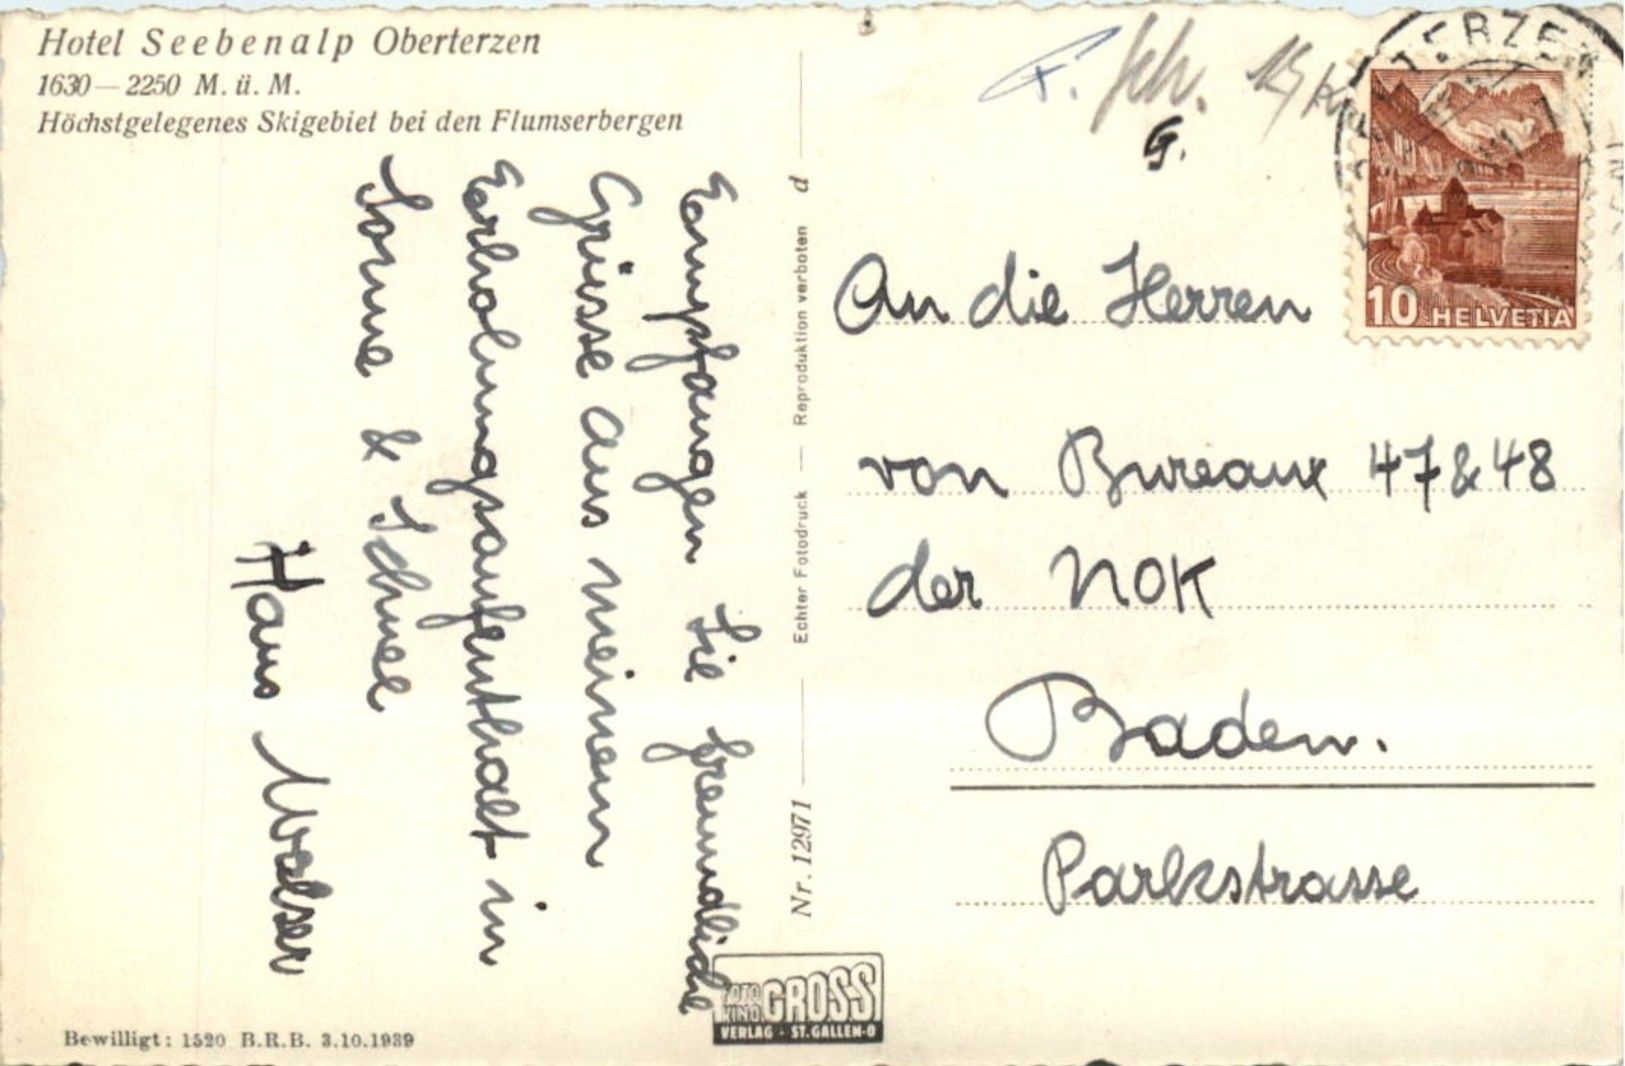 Hotel Seebenalp Oberterzen
1630 — 2250 M. ü. M.
Höchstgelegenes Skigebiet bei den Flumserbergen
Empfangen Sie freundliche
Grüsse aus meinem
Erholungsaufenthalt in
Sonne & Schnee
Hans Walser
Bewilligt: 1520 B.R.B. 3.10.1939
Nr. 12971 — Echter Fotodruck — Reproduktion verboten d
FOTO KINO GROSS
VERLAG - ST. GALLEN-O
F. Sch.
G.
10 HELVETIA
An die Herren
von Bureaux 47 & 48
der NOK
Baden.
Parkstrasse